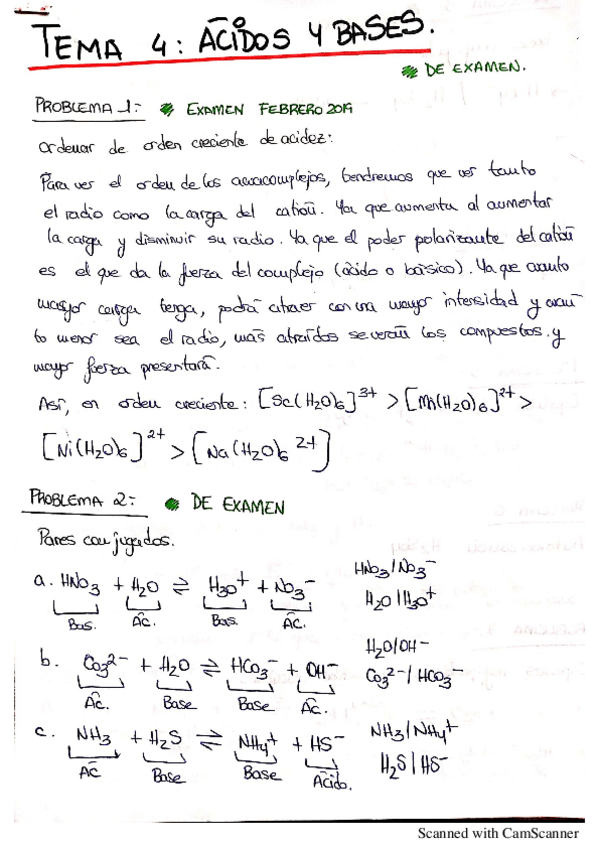 TEMA 4: ÁCIDOS Y BASES.
* DE EXAMEN.
PROBLEMA 1:- * EXAMEN FEBRERO 2019
Ordenar de orden creciente de acidez:
Para ver el orden de los acuacomplejos, tendremos que ver tanto
el radio como la carga del catión. Ya que aumenta al aumentar
la carga y disminuir su radio. Ya que el poder polarizante del catión
es el que da la fuerza del complejo (ácido o básico). Ya que cuanto
mayor carga tenga, podrá atraer con una mayor intensidad y cuan
to menor sea el radio, más atraídos se verán los compuestos y
mayor fuerza presentará.
Así, en orden creciente: [Sc(H2O)6]3+ > [Mn(H2O)6]2+ >
[Ni(H2O)6]2+ > [Na(H2O)6 2+]
PROBLEMA 2:- * DE EXAMEN
Pares conjugados.
a. HNO3 + H2O ⇌ H3O+ + NO3- HNO3/NO3-
Bas. Ác. Bas. Ác. H2O/H3O+
b. CO3 2- + H2O ⇌ HCO3- + OH- H2O/OH-
Ác. Base Base Ác. CO3 2-/HCO3-
c. NH3 + H2S ⇌ NH4+ + HS- NH3/NH4+
Ác Base Base Ácido. H2S/HS-
Scanned with CamScanner